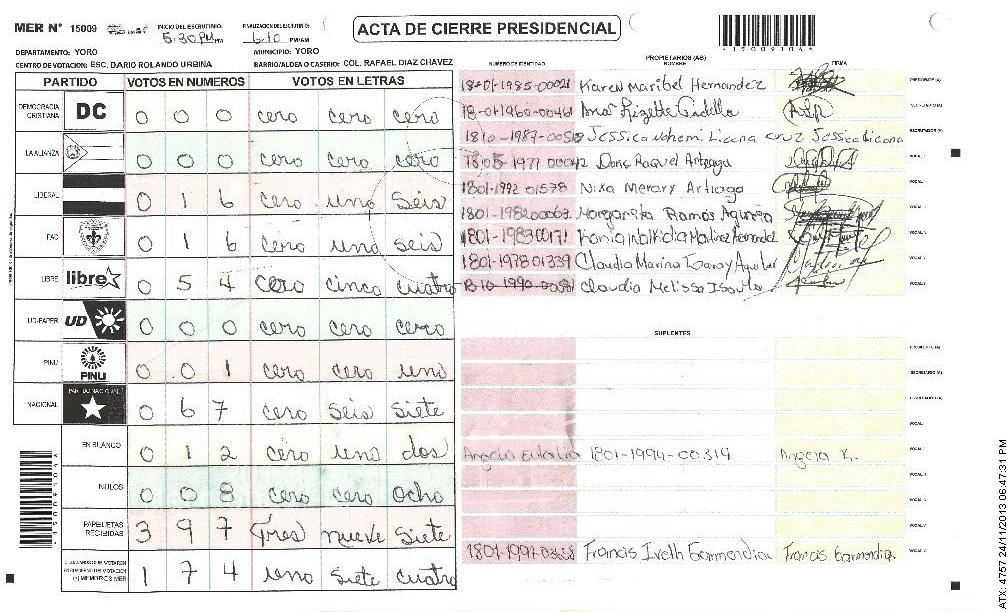 MER N° 15009
INICIO DEL ESCRUTINIO: 5:30 PM PM
FINALIZACION DEL ESCRUTINIO: 6:10 PM/AM
ACTA DE CIERRE PRESIDENCIAL
DEPARTAMENTO: YORO
MUNICIPIO: YORO
CENTRO DE VOTACION: ESC. DARIO ROLANDO URBINA
BARRIO/ALDEA O CASERIO: COL. RAFAEL DIAZ CHAVEZ
PARTIDO VOTOS EN NUMEROS VOTOS EN LETRAS
DEMOCRACIA CRISTIANA DC 0 0 0 cero cero cero
LA ALIANZA 0 0 0 cero cero cero
LIBERAL 0 1 6 cero uno seis
FAC 0 1 6 cero uno seis
LIBRE libre 0 5 4 cero cinco cuatro
UD-FAPER UD 0 0 0 cero cero cero
PINU PINU 0 0 1 cero cero uno
NACIONAL PARTIDO NACIONAL 0 6 7 cero seis siete
EN BLANCO 0 1 2 cero uno dos
NULOS 0 0 8 cero cero ocho
PAPELETAS RECIBIDAS 3 9 7 Tres nueve siete
MIEMBROS MER 1 7 4 uno siete cuatro
PROPIETARIOS (AB)
NUMERO DE IDENTIDAD NOMBRE FIRMA
1801-1985-00021 Karen Maribel Hernandez PRESIDENTE (A)
18-01-1960-00461 Ana Lizette Padilla SECRETARIO (A)
1810-1987-00518 Jessica Nohemi Licona cruz Jessica Licona ESCRUTADOR (A)
1805-1977 00042 Doris Raquel Arteaga VOCAL I
1801-1992 01578 Nixa Merary Artiaga
Margarita Ramos
1801-1983 00171 Martinez Hernandez
1801-1978 01339 Claudia Marina Garay Aguilar
18 10-1990-0081 Claudia Melissa
SUPLENTES
PRESIDENTE (A)
SECRETARIO (A)
ESCRUTADOR (A)
VOCAL I
Angela Eulalia 1801-1994-00319 Angela
Francis Iveth Garmendia Francis Garmendia
ATX: 4757 24/11/2013 06:47:31 PM